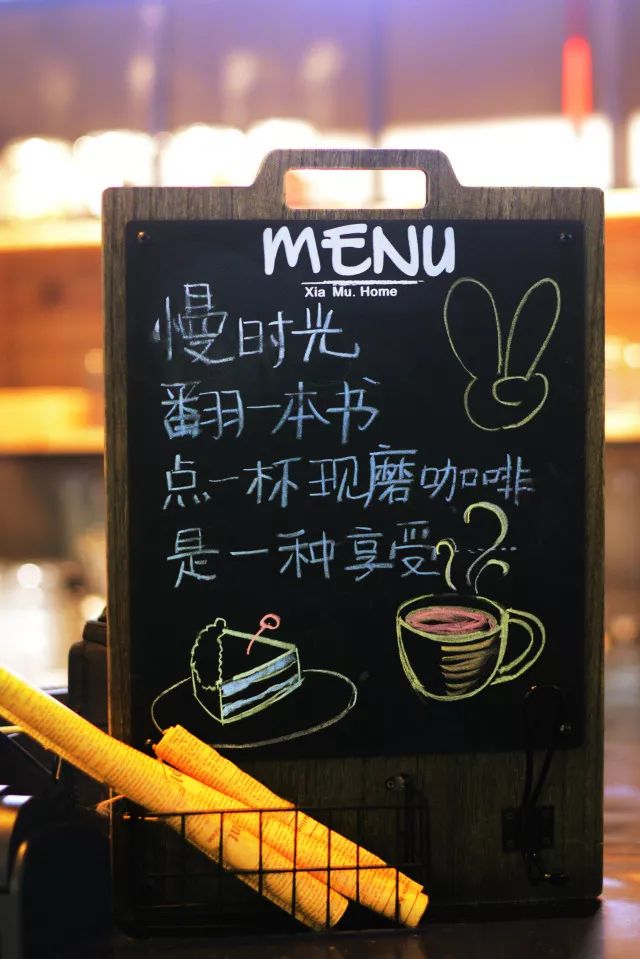 MENU
Xia Mu. Home
慢时光
翻一本书
点一杯现磨咖啡
是一种享受...